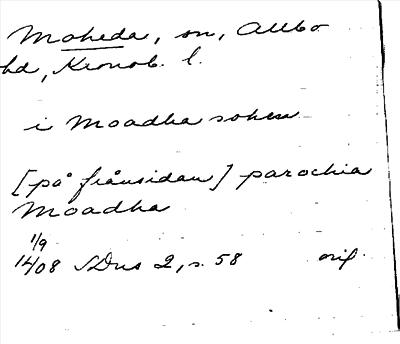 Moheda, sn, Allbo
hd, Kronob. l.
i Moadha sokn
[på frånsidan] parochia
Moadha
1/9
1408 SDns 2, s. 58 orig.